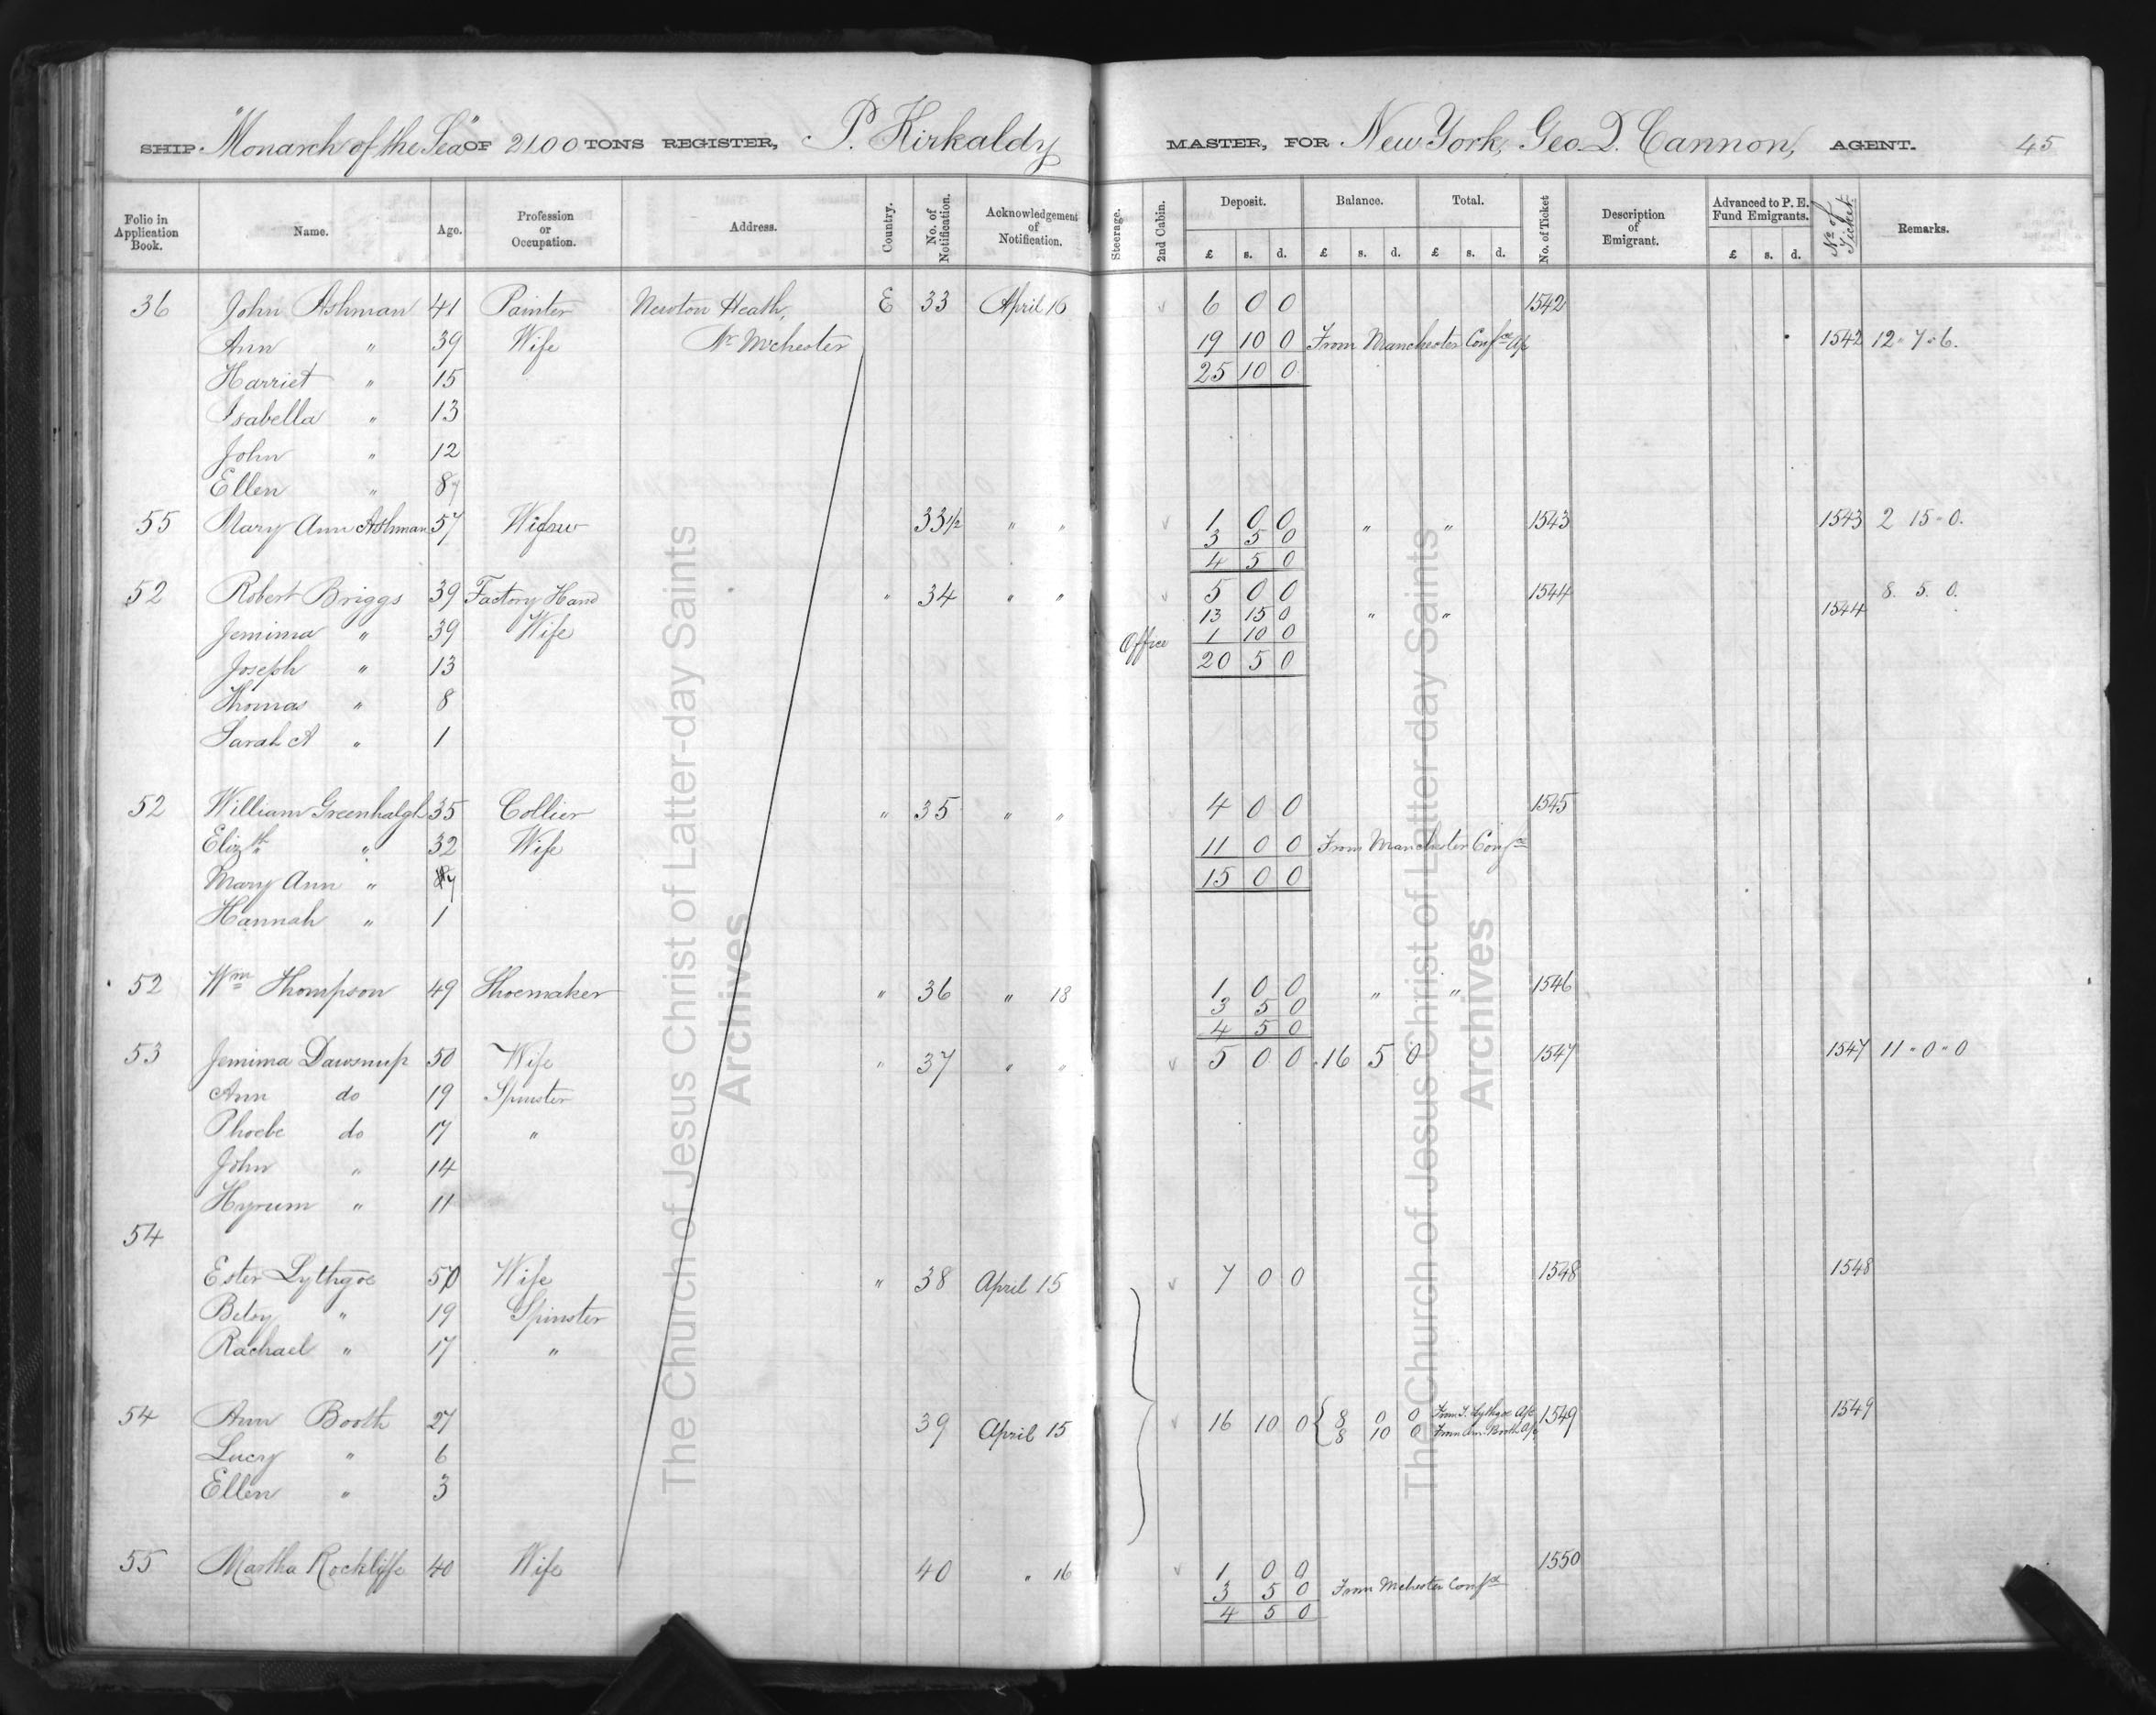 SHIP "Monarch of the Sea" OF 2100 TONS REGISTER, P. Kirkaldy MASTER, FOR New York, Geo. Q. Cannon, AGENT. 45
Folio in Application Book. Name. Age. Profession or Occupation. Address. Country. No. of Notification. Acknowledgement of Notification. Steerage. 2nd Cabin. Deposit. Balance. Total. No. of Ticket Description of Emigrant. Advanced to P. E. Fund Emigrants. No. of Ticket Remarks.
£ s. d. £ s. d. £ s. d. £ s. d.
36 John Ashman 41 Painter Newton Heath, E 33 April 16 6 0 0 1542
Ann " 39 Wife Nr Mchester 19 10 0 From Manchester Confce a/c 1542 12 - 7 - 6.
Harriet " 15 25 10 0
Isabella " 13
John " 12
Ellen " 8
55 Mary Ann Ashman 57 Widow 33 1/2 " " 1 0 0 " " 1543 1543 2 15 - 0.
3 5 0
4 5 0
52 Robert Briggs 39 Factory Hand " 34 " " 5 0 0 1544 8. 5. 0.
13 15 0 " " 1544
Jemima " 39 Wife Office 1 10 0
Joseph " 13 20 5 0
Thomas " 8
Sarah A " 1
52 William Greenhalgh 35 Collier " 35 " " 4 0 0 1545
Elizth " 32 Wife 11 0 0 From Manchester Confce
Mary Ann " 15 0 0
Hannah " 1
52 Wm Thompson 49 Shoemaker " 36 " 18 1 0 0 " " 1546
3 5 0
4 5 0
53 Jemima Dawsnup 50 Wife " 37 " " 5 0 0 16 5 0 1547 1547 11 - 0 - 0
Ann do 19 Spinster
Phoebe do 17 "
John " 14
Hyrum " 11
54
Ester Lythgoe 50 Wife " 38 April 15 7 0 0 1548 1548
Betsy " 19 Spinster
Rachael " 17 "
54 Ann Booth 27 39 April 15 16 10 0 { 8 0 0 From T. Lythgoe a/c 1549 1549
8 10 0 From Ann Booth a/c
Lucy " 6
Ellen " 3
55 Martha Rockliffe 40 Wife 40 " 16 1 0 0 1550
3 5 0 From Mchester Confce
4 5 0
The Church of Jesus Christ of Latter-day Saints
Archives
The Church of Jesus Christ of Latter-day Saints
Archives